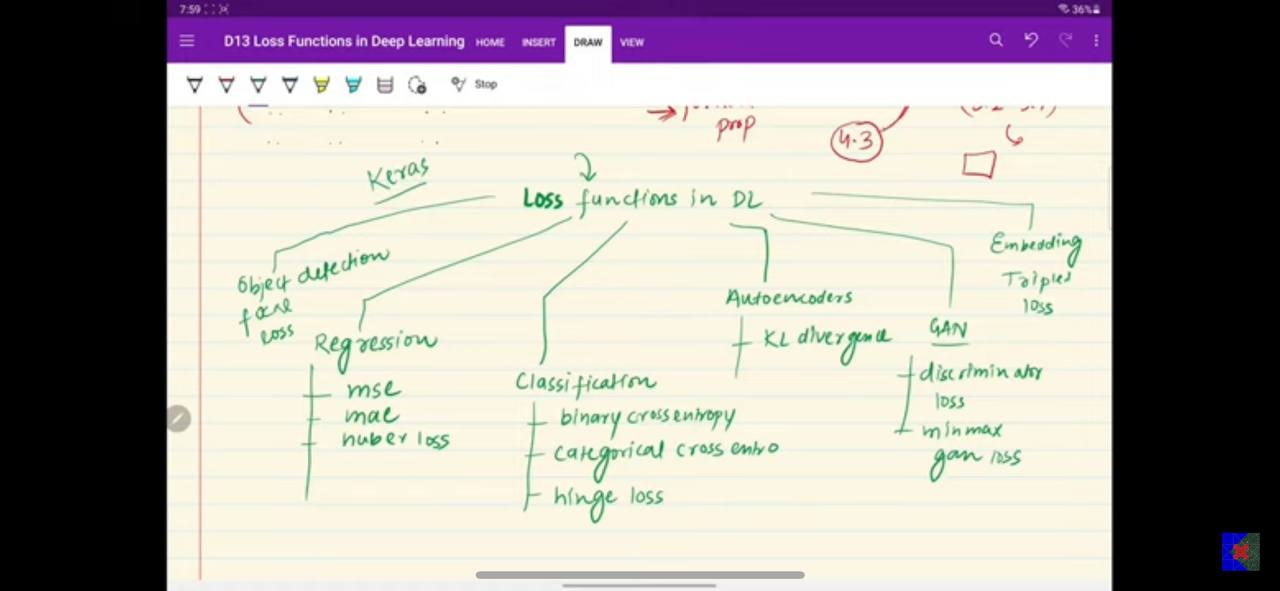 7:59
36%
D13 Loss Functions in Deep Learning HOME INSERT DRAW VIEW
Stop
prop
4.3
Keras
Loss functions in DL
Object detection
focal
loss
Regression
mse
mae
huber loss
Classification
binary cross entropy
categorical cross entro
hinge loss
Autoencoders
KL divergence
GAN
discriminator
loss
minmax
gan loss
Embedding
Triplet
loss